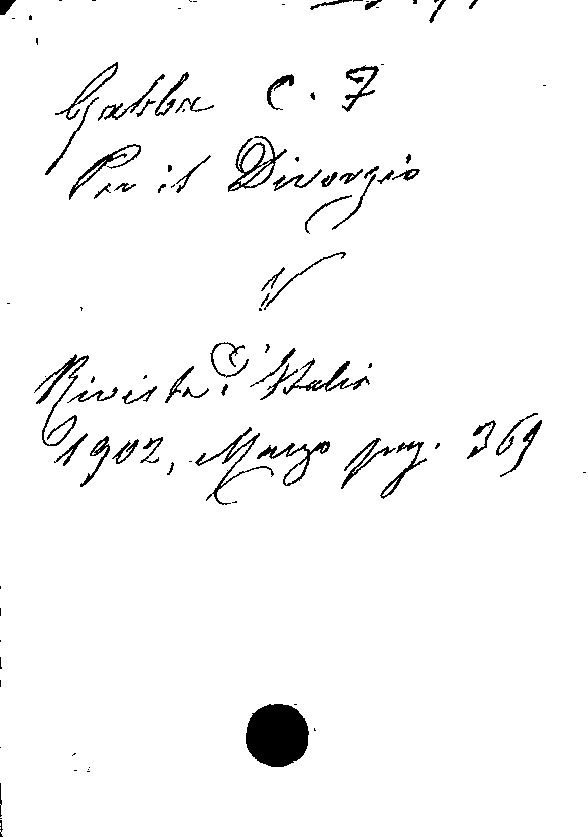 Gabba C. F
Per il Divorzio
V
Rivista d'Italia
1902, Marzo pag. 369